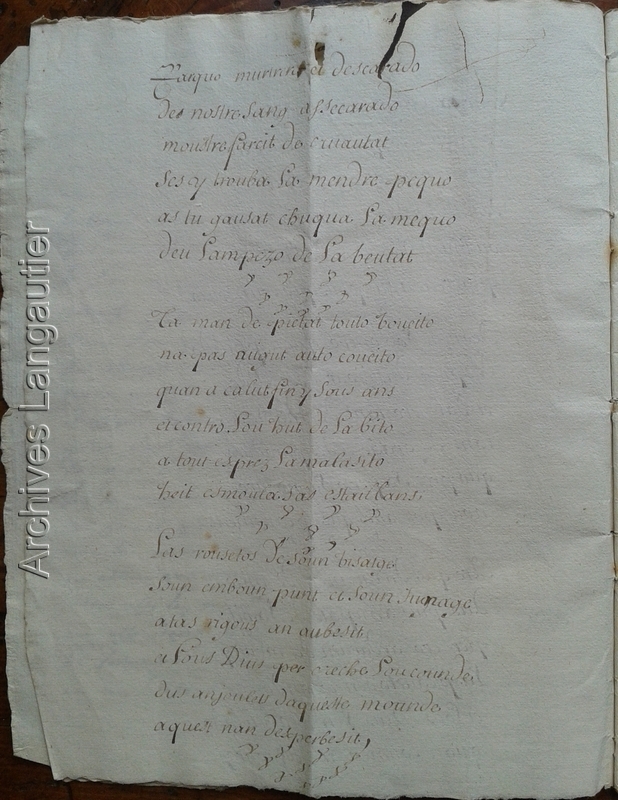 Parquo murtrro et descarado
des nostre sang assecarado
moustre farcit de cruautat
ses cy trouba la mendre pequo
as tu gausat chuqua la mequo
deu lampezo de la beutat
Ta man de pietat touto boueito
na pas augut auto coueito
quan a calut finy sous ans
et contro lou hut de la bito
a tout esprez la malasito
heit esmoula sas estaillans
Las rousetos de soun bisatge
soun emboun punt et soun
a tas rigous an aubesit
et lous Dius per creche lou counde
dus anjoulets daqueste mounde
aquest nan desperbesit,
Archives Langautier